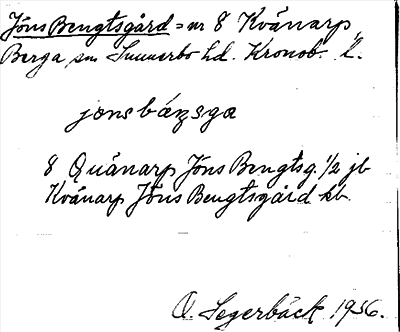 Jöns Bengtsgård = nr 8 Kvänarp,
Berga sn Sunnerbo hd. Kronob. l.
jonsbáŋsga
8 Quänarp Jöns Bengtsg. 1/2 jb
Kvänarp Jöns Bengtsgård kb.
O. Segerbäck 1936.